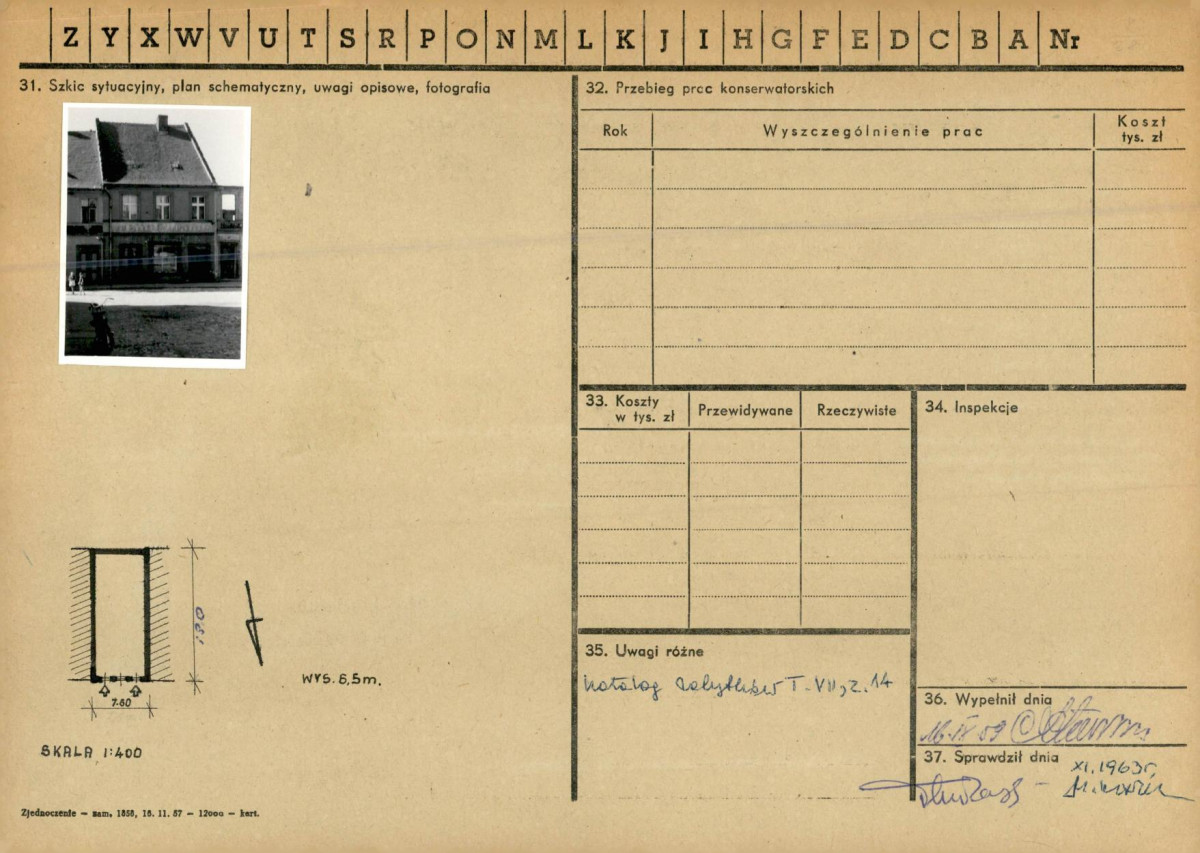 Z Y X W V U T S R P O N M L K J I H G F E D C B A Nr
31. Szkic sytuacyjny, plan schematyczny, uwagi opisowe, fotografia
32. Przebieg prac konserwatorskich
Rok
Wyszczególnienie prac
Koszt
tys. zł
33. Koszty
w tys. zł
Przewidywane
Rzeczywiste
34. Inspekcje
7.60
WYS. 6,5m.
SKALA 1:400
35. Uwagi różne
Katalog zabytków T. VII, z. 14
36. Wypełnił dnia
37. Sprawdził dnia
XI. 1963r.
Zjednoczenie — zam. 1858, 16. 11. 57 — 12000 — kart.